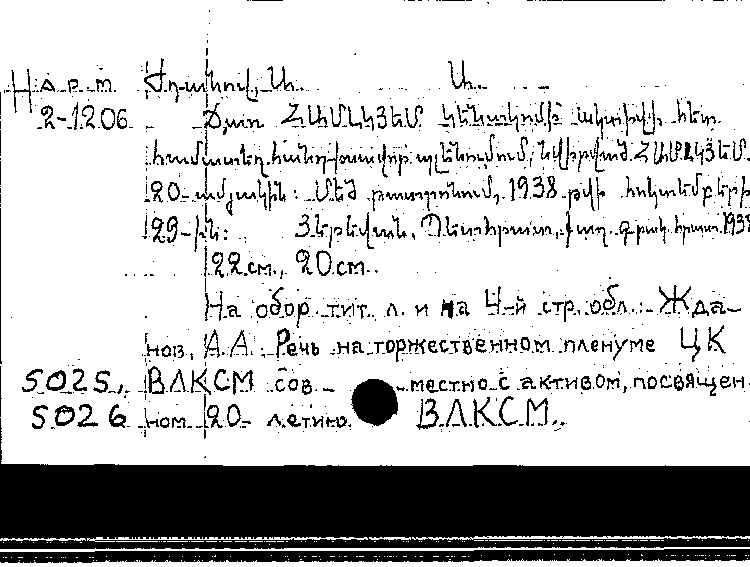 Нарт Ժդանով, Ա. Ա.
2-1206 Ճառ ՀԱՄԼԿՅԵՄ կենտկոմի ակտիվի հետ
համատեղ հանդիսավոր պլենումում, նվիրված ՀԱՄԼԿՅԵՄ
20-ամյակին: Մեծ թատրոնում, 1938 թվի հոկտեմբերի
29-ին: Յերեվան, Պետհրատ, քաղ. գրակ. հրատ. 1938
22 см., 20 см.
На обор. тит. л. и на 4-й стр. обл.: Жда-
нов, А.А. Речь на торжественном пленуме ЦК
5025, ВЛКСМ сов- местно с активом, посвящен-
5026 ном 20-летию ВЛКСМ.